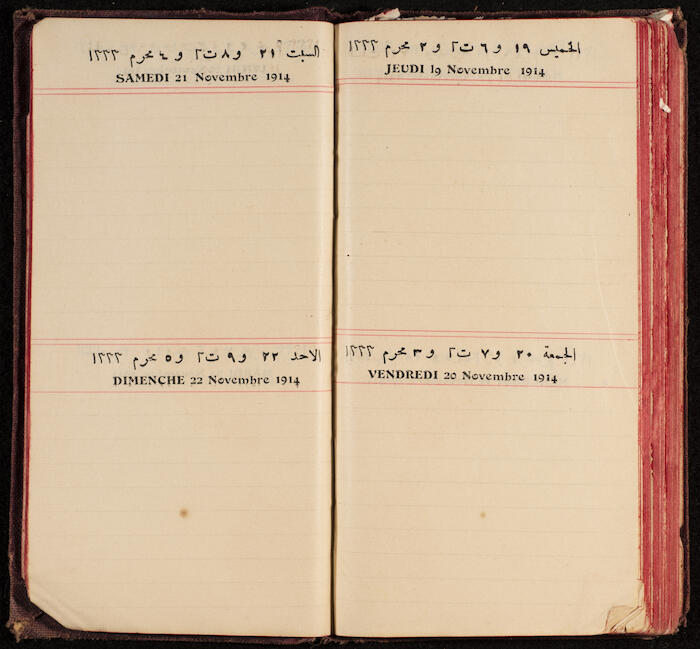 الخميس ١٩ و ٦ ت٢ و ٢ محرم ١٣٣٣
JEUDI 19 Novembre 1914
الجمعة ٢٠ و ٧ ت٢ و ٣ محرم ١٣٣٣
VENDREDI 20 Novembre 1914
السبت ٢١ و ٨ ت٢ و ٤ محرم ١٣٣٣
SAMEDI 21 Novembre 1914
الاحد ٢٢ و ٩ ت٢ و ٥ محرم ١٣٣٣
DIMENCHE 22 Novembre 1914